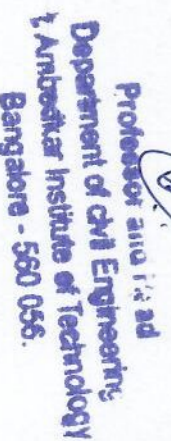 Professor and Head
Department of Civil Engineering
Ambedkar Institute of Technology
Bangalore - 560 056.